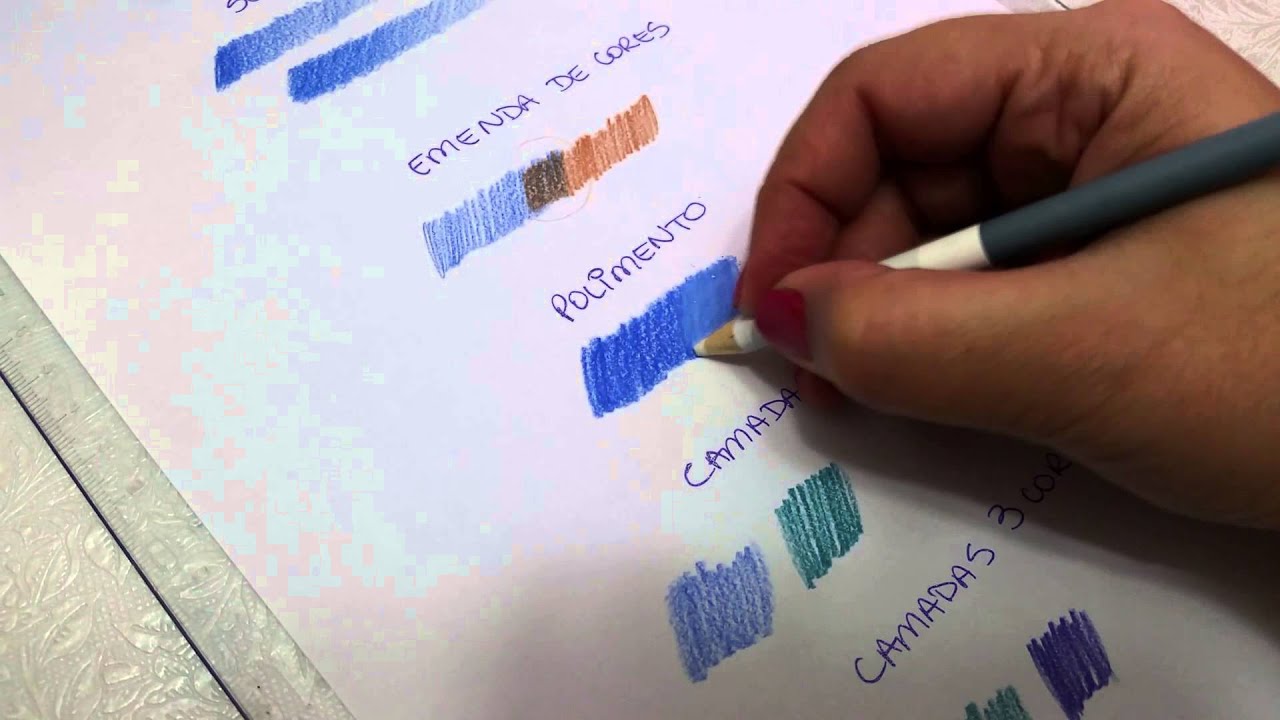 EMENDA DE CORES
POLIMENTO
CAMADA
CAMADAS 3 COR